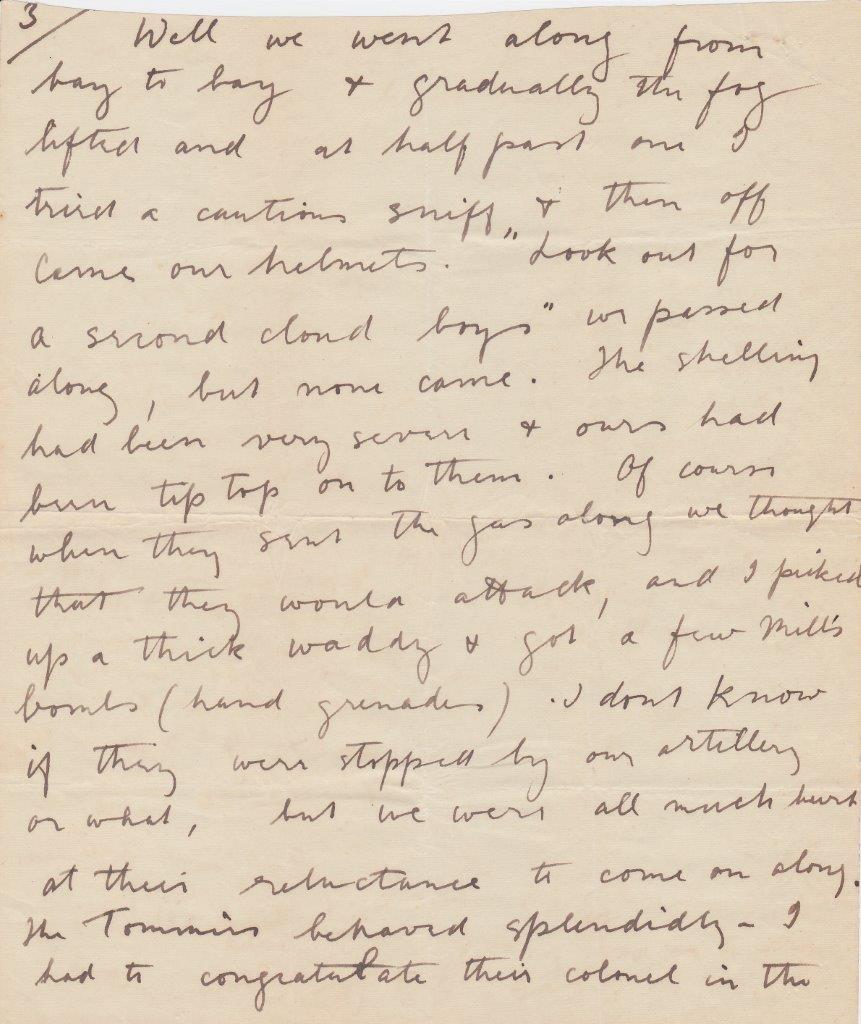 3/
Well we went along from
bay to bay & gradually the fog
lifted and at half past one I
tried a cautious sniff & then off
came our helmets. "Look out for
a second cloud boys" we passed
along, but none came. The shelling
had been very severe & ours had
been tip top on to them. Of course
when they sent the gas along we thought
that they would attack, and I picked
up a thick waddy & got a few Mill's
bombs (hand grenades). I dont know
if they were stopped by our artillery
or what, but we were all much hurt
at their reluctance to come on along.
The Tommies behaved splendidly - I
had to congratulate their colonel in the